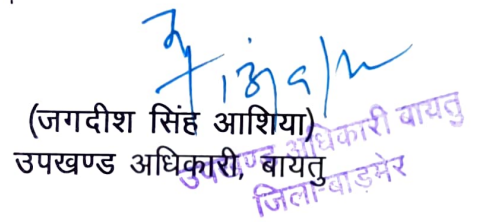 (जगदीश सिंह आशिया)
उपखण्ड अधिकारी, बायतु
उपखण्ड अधिकारी बायतु
जिला-बाड़मेर